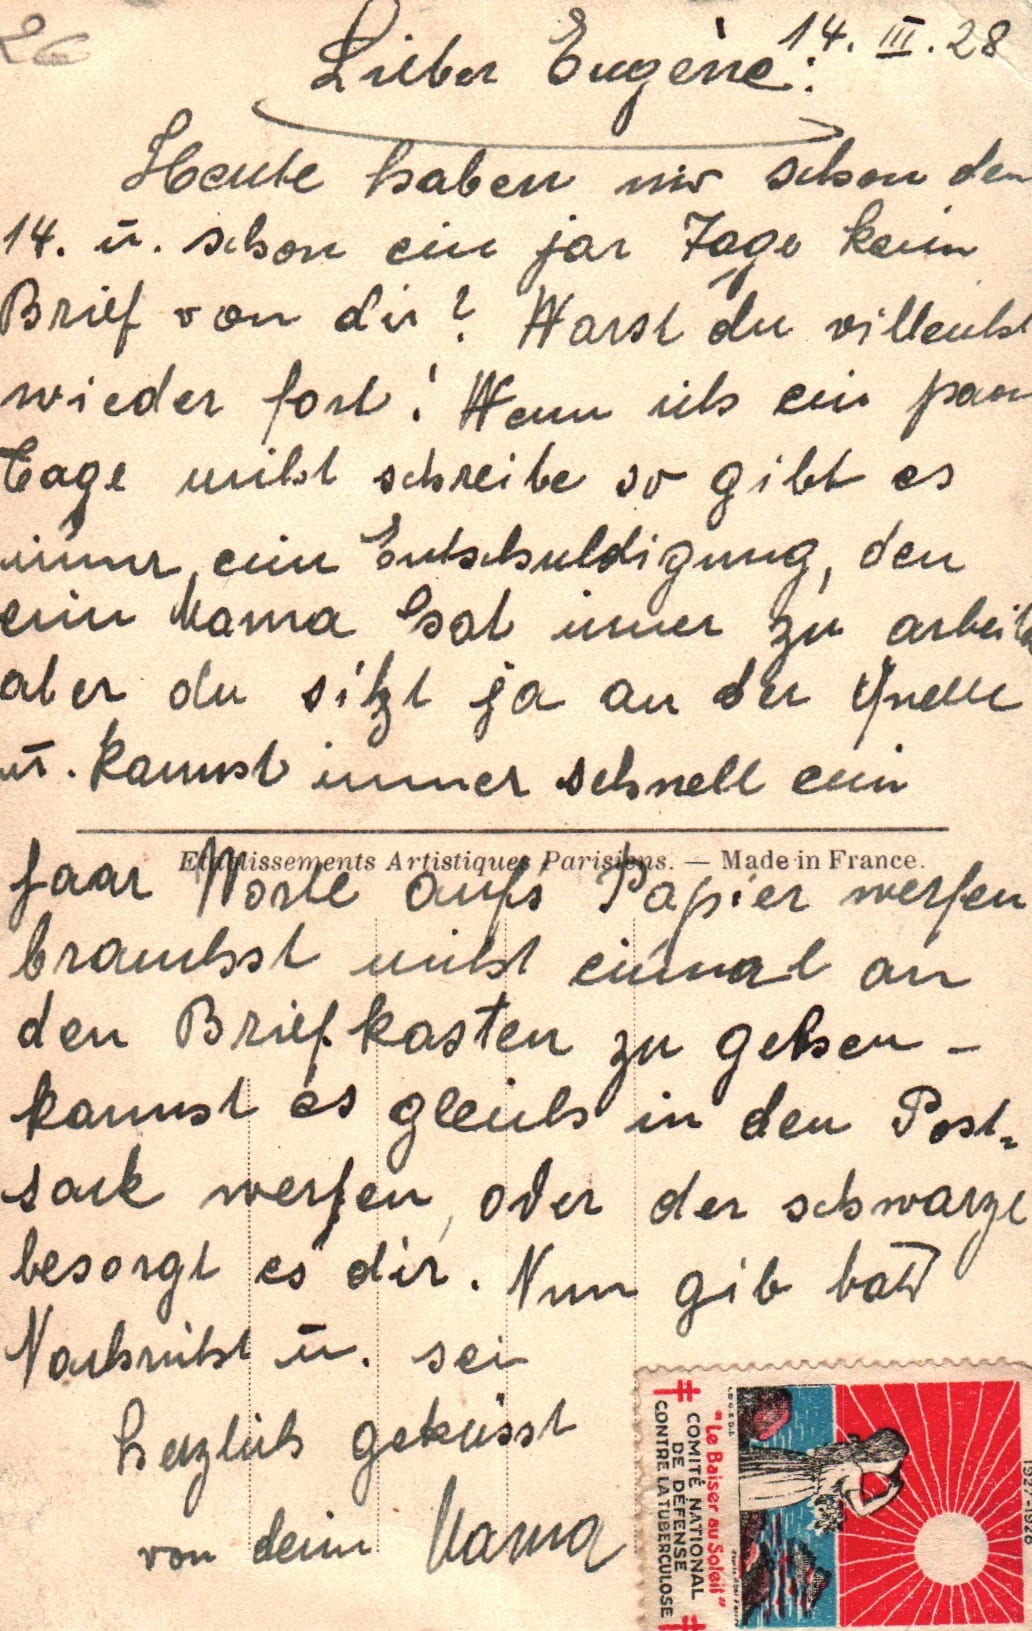 26
14. III. 28
Lieber Eugène:
Heute haben wir schon den
14. u. schon ein par Tage kein
Brief von dir? Warst du villeicht
wieder fort! Wenn ich ein paar
Tage nicht schreibe so gibt es
immer ein Entschuldigung, den
ein Mama hat imer zu arbeiten
aber du sitzt ja an der Quelle
u. kannst immer schnell ein
Etablissements Artistiques Parisiens. — Made in France.
paar Worte aufs Papier werfen
brauchst nicht einmal an
den Briefkasten zu gehen –
kannst es gleich in den Post-
sack werfen, oder der schwarze
besorgt es dir. Nun gib bald
Nachricht u. sei
herzlich geküsst
von dein Mama
"Le Baiser au Soleil"
COMITÉ NATIONAL
DE DÉFENSE
CONTRE LA TUBERCULOSE
1927-1928